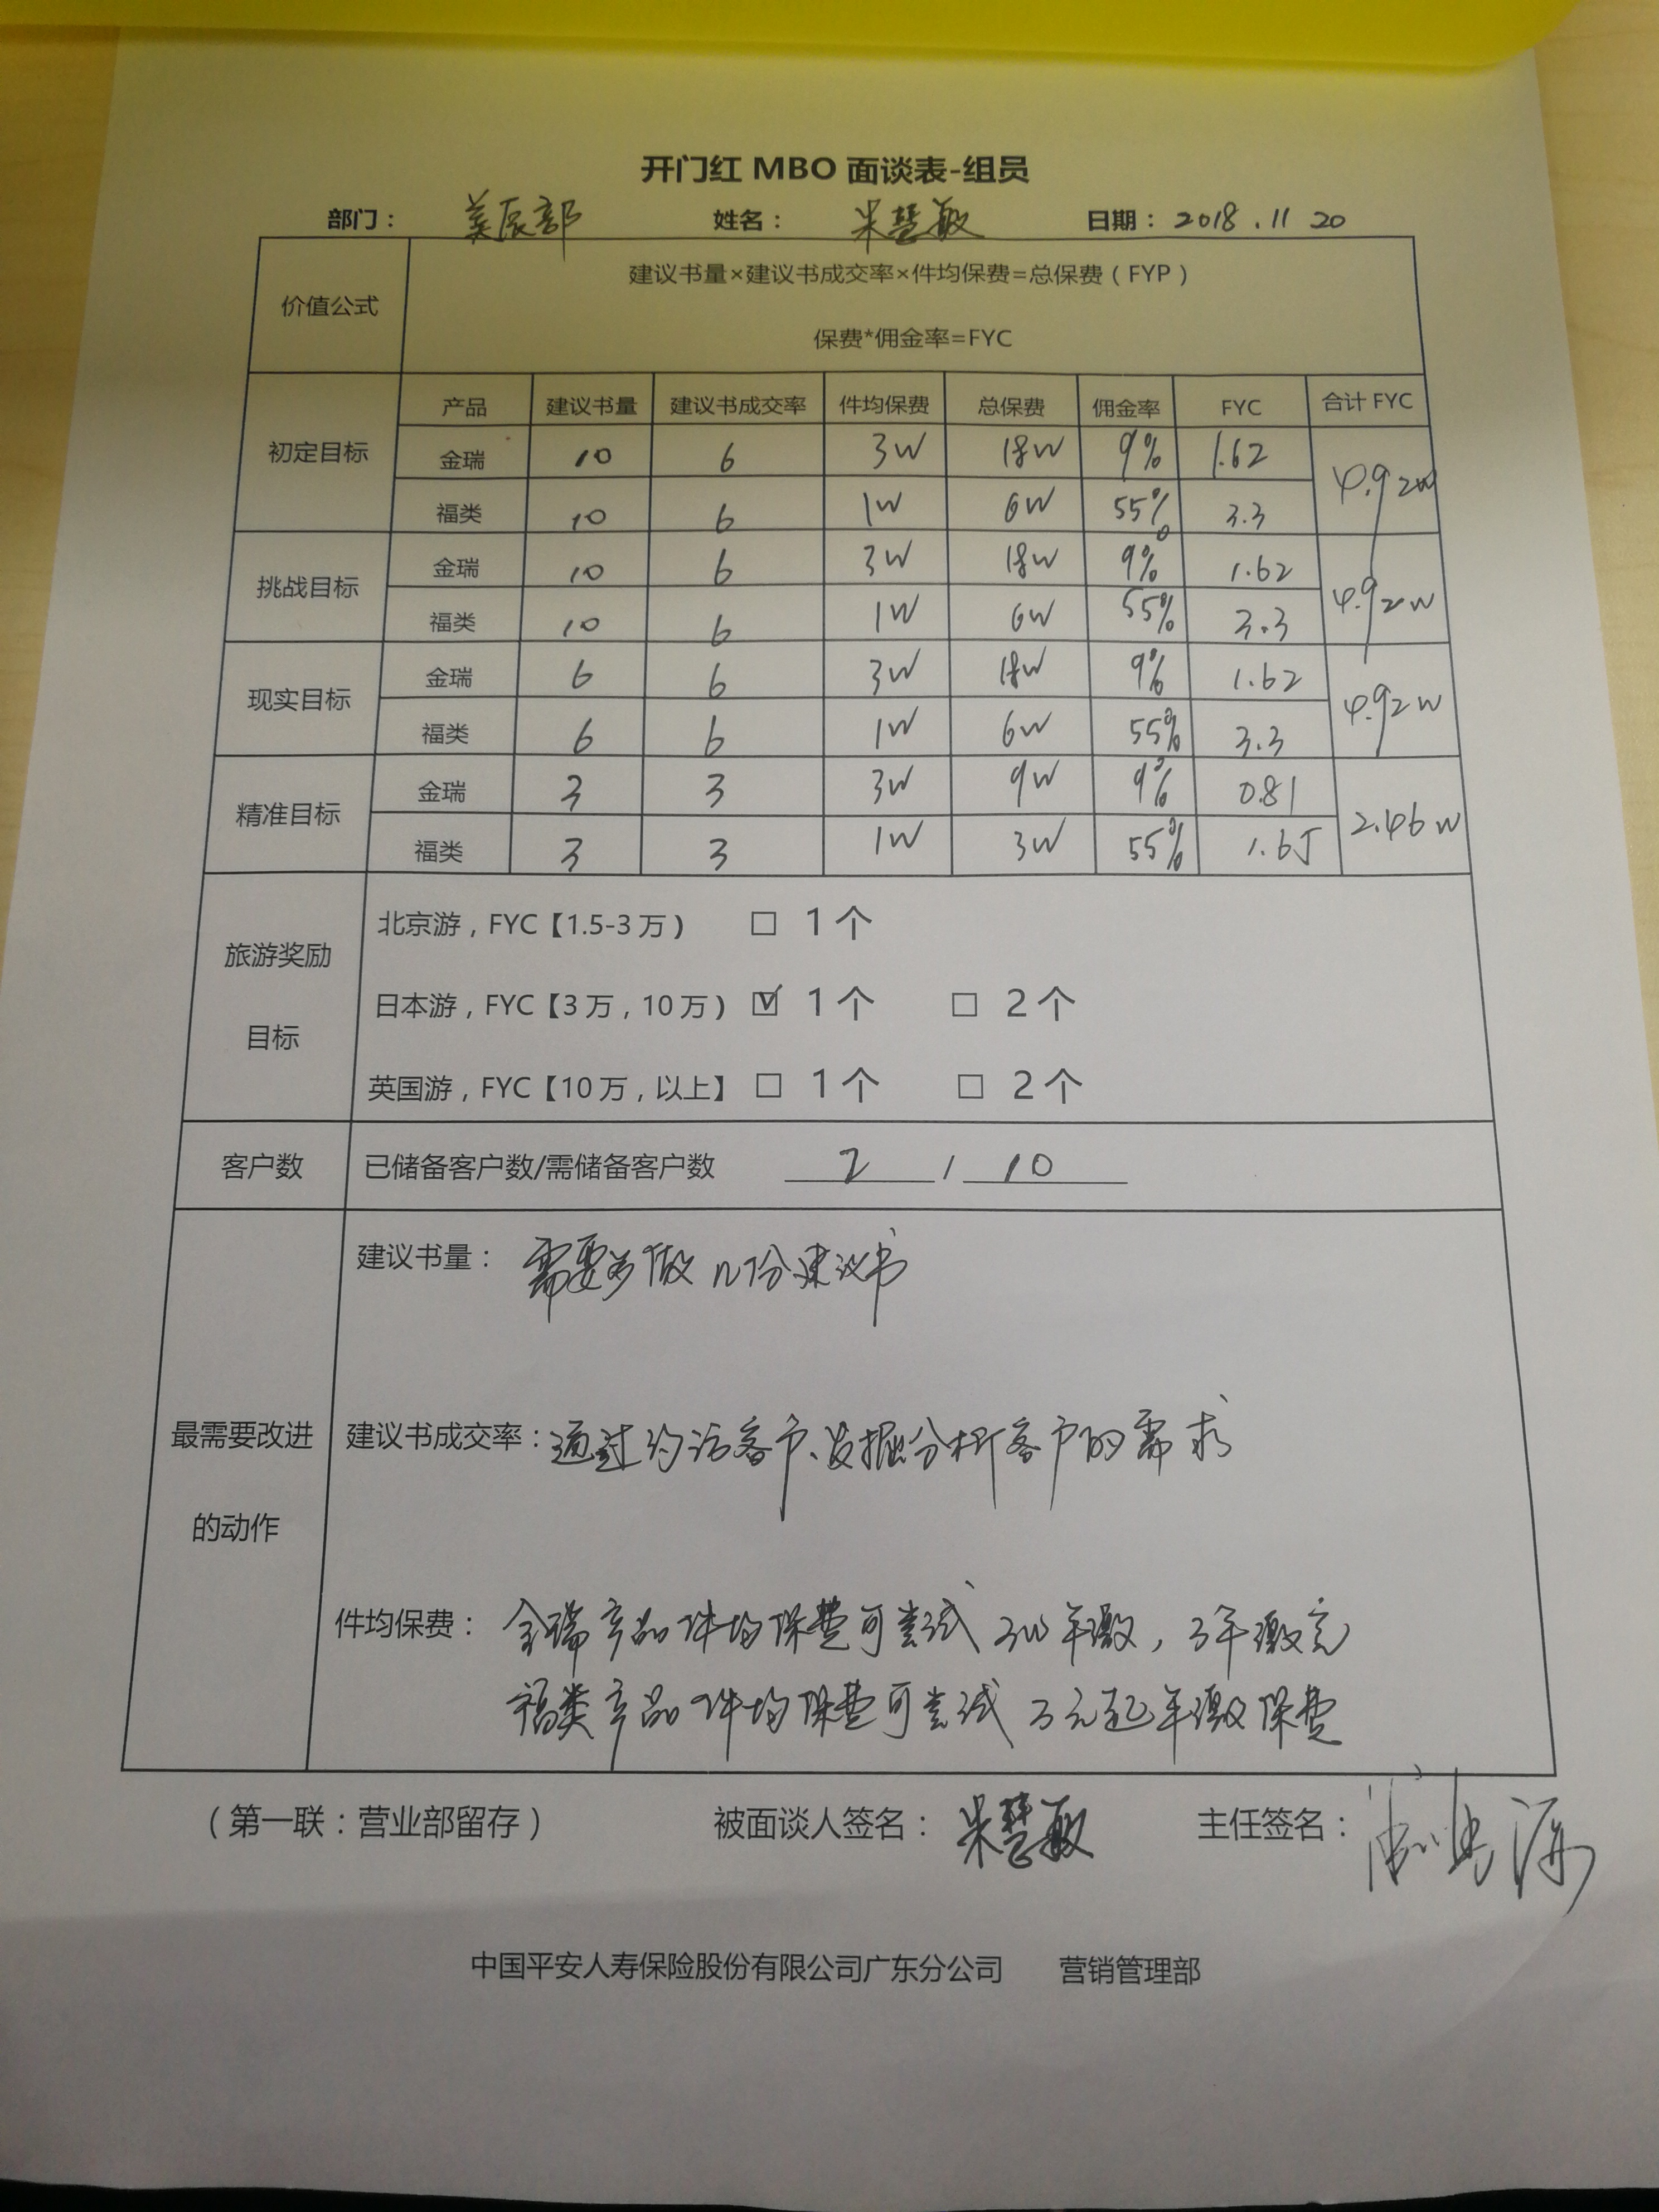 开门红 MBO 面谈表-组员
部门： 美辰部 姓名： 朱慧敏 日期： 2018.11 20
价值公式
建议书量×建议书成交率×件均保费=总保费（FYP）
保费*佣金率=FYC
产品 建议书量 建议书成交率 件均保费 总保费 佣金率 FYC 合计 FYC
初定目标
金瑞 10 6 3W 18W 9% 1.62
4.92W
福类 10 6 1W 6W 55% 3.3
挑战目标
金瑞 10 6 3W 18W 9% 1.62
4.92W
福类 10 6 1W 6W 55% 3.3
现实目标
金瑞 6 6 3W 18W 9% 1.62
4.92W
福类 6 6 1W 6W 55% 3.3
精准目标
金瑞 3 3 3W 9W 9% 0.81
2.46W
福类 3 3 1W 3W 55% 1.65
旅游奖励
目标
北京游，FYC【1.5-3 万） □ 1 个
日本游，FYC【3 万，10 万） ☑ 1 个 □ 2 个
英国游，FYC【10 万，以上】 □ 1 个 □ 2 个
客户数 已储备客户数/需储备客户数 2 / 10
最需要改进
的动作
建议书量： 需要多做几份建议书
建议书成交率：通过约访客户、发掘分析客户的需求
件均保费： 金瑞产品件均保费可尝试3W年缴，3年缴完
福类产品件均保费可尝试万元起年缴保费
（第一联：营业部留存） 被面谈人签名： 朱慧敏 主任签名：
中国平安人寿保险股份有限公司广东分公司 营销管理部